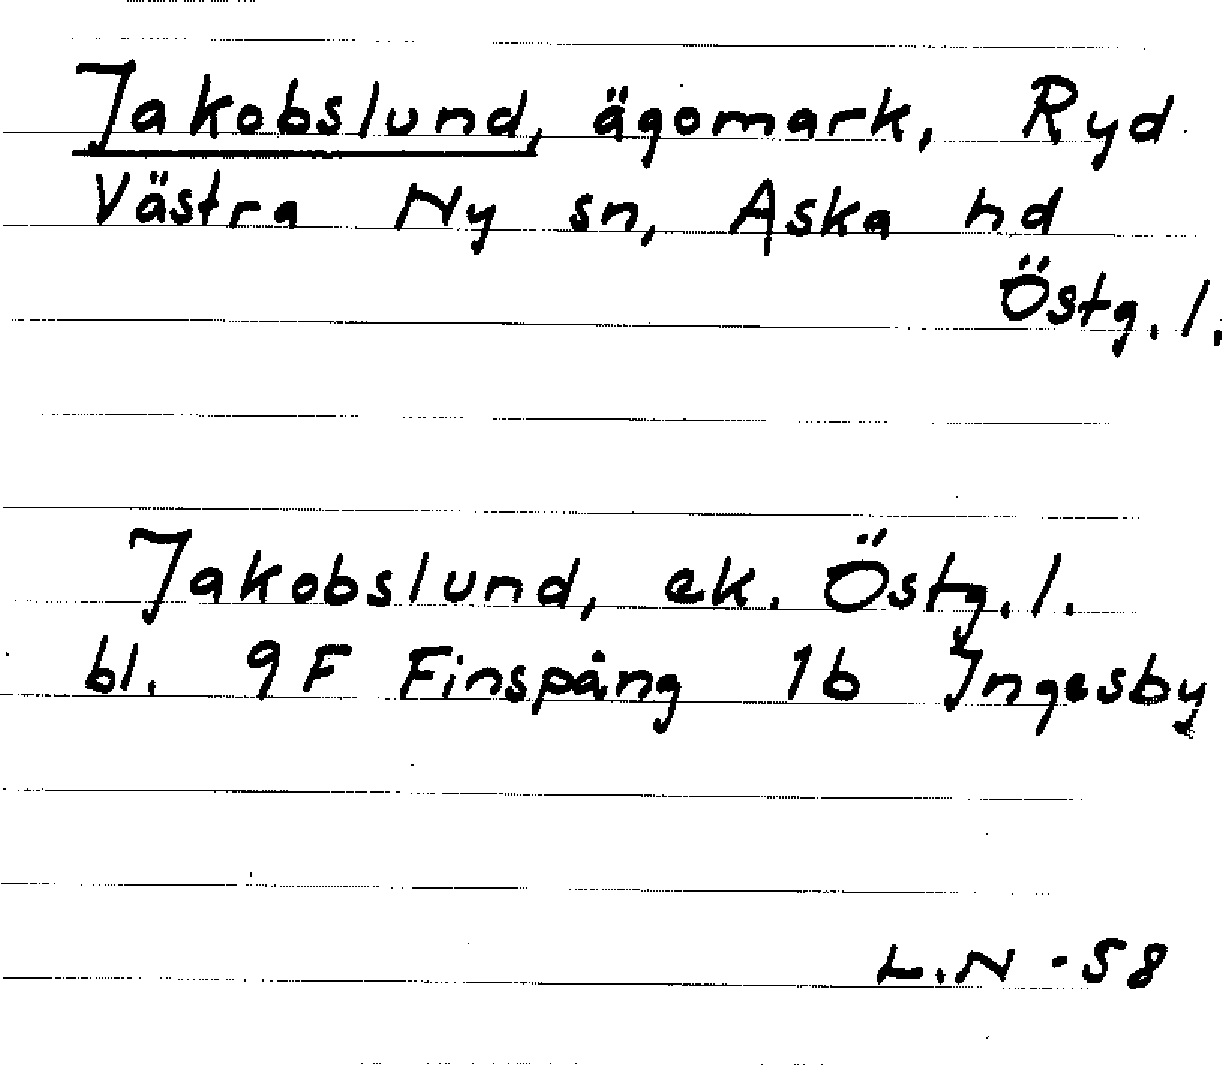 Jakobslund, ägomark, Ryd
Västra Ny sn, Aska hd
Östg. l.
Jakobslund, ek. Östg. l.
bl. 9F Finspång 1b Ingesby
L.N -58